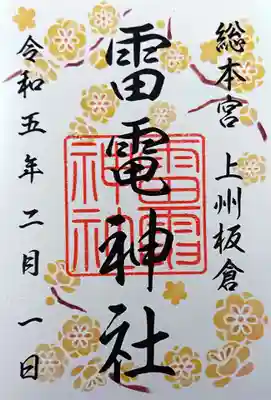 総本宮 上州板倉
雷電神社
雷電神社
令和五年二月一日